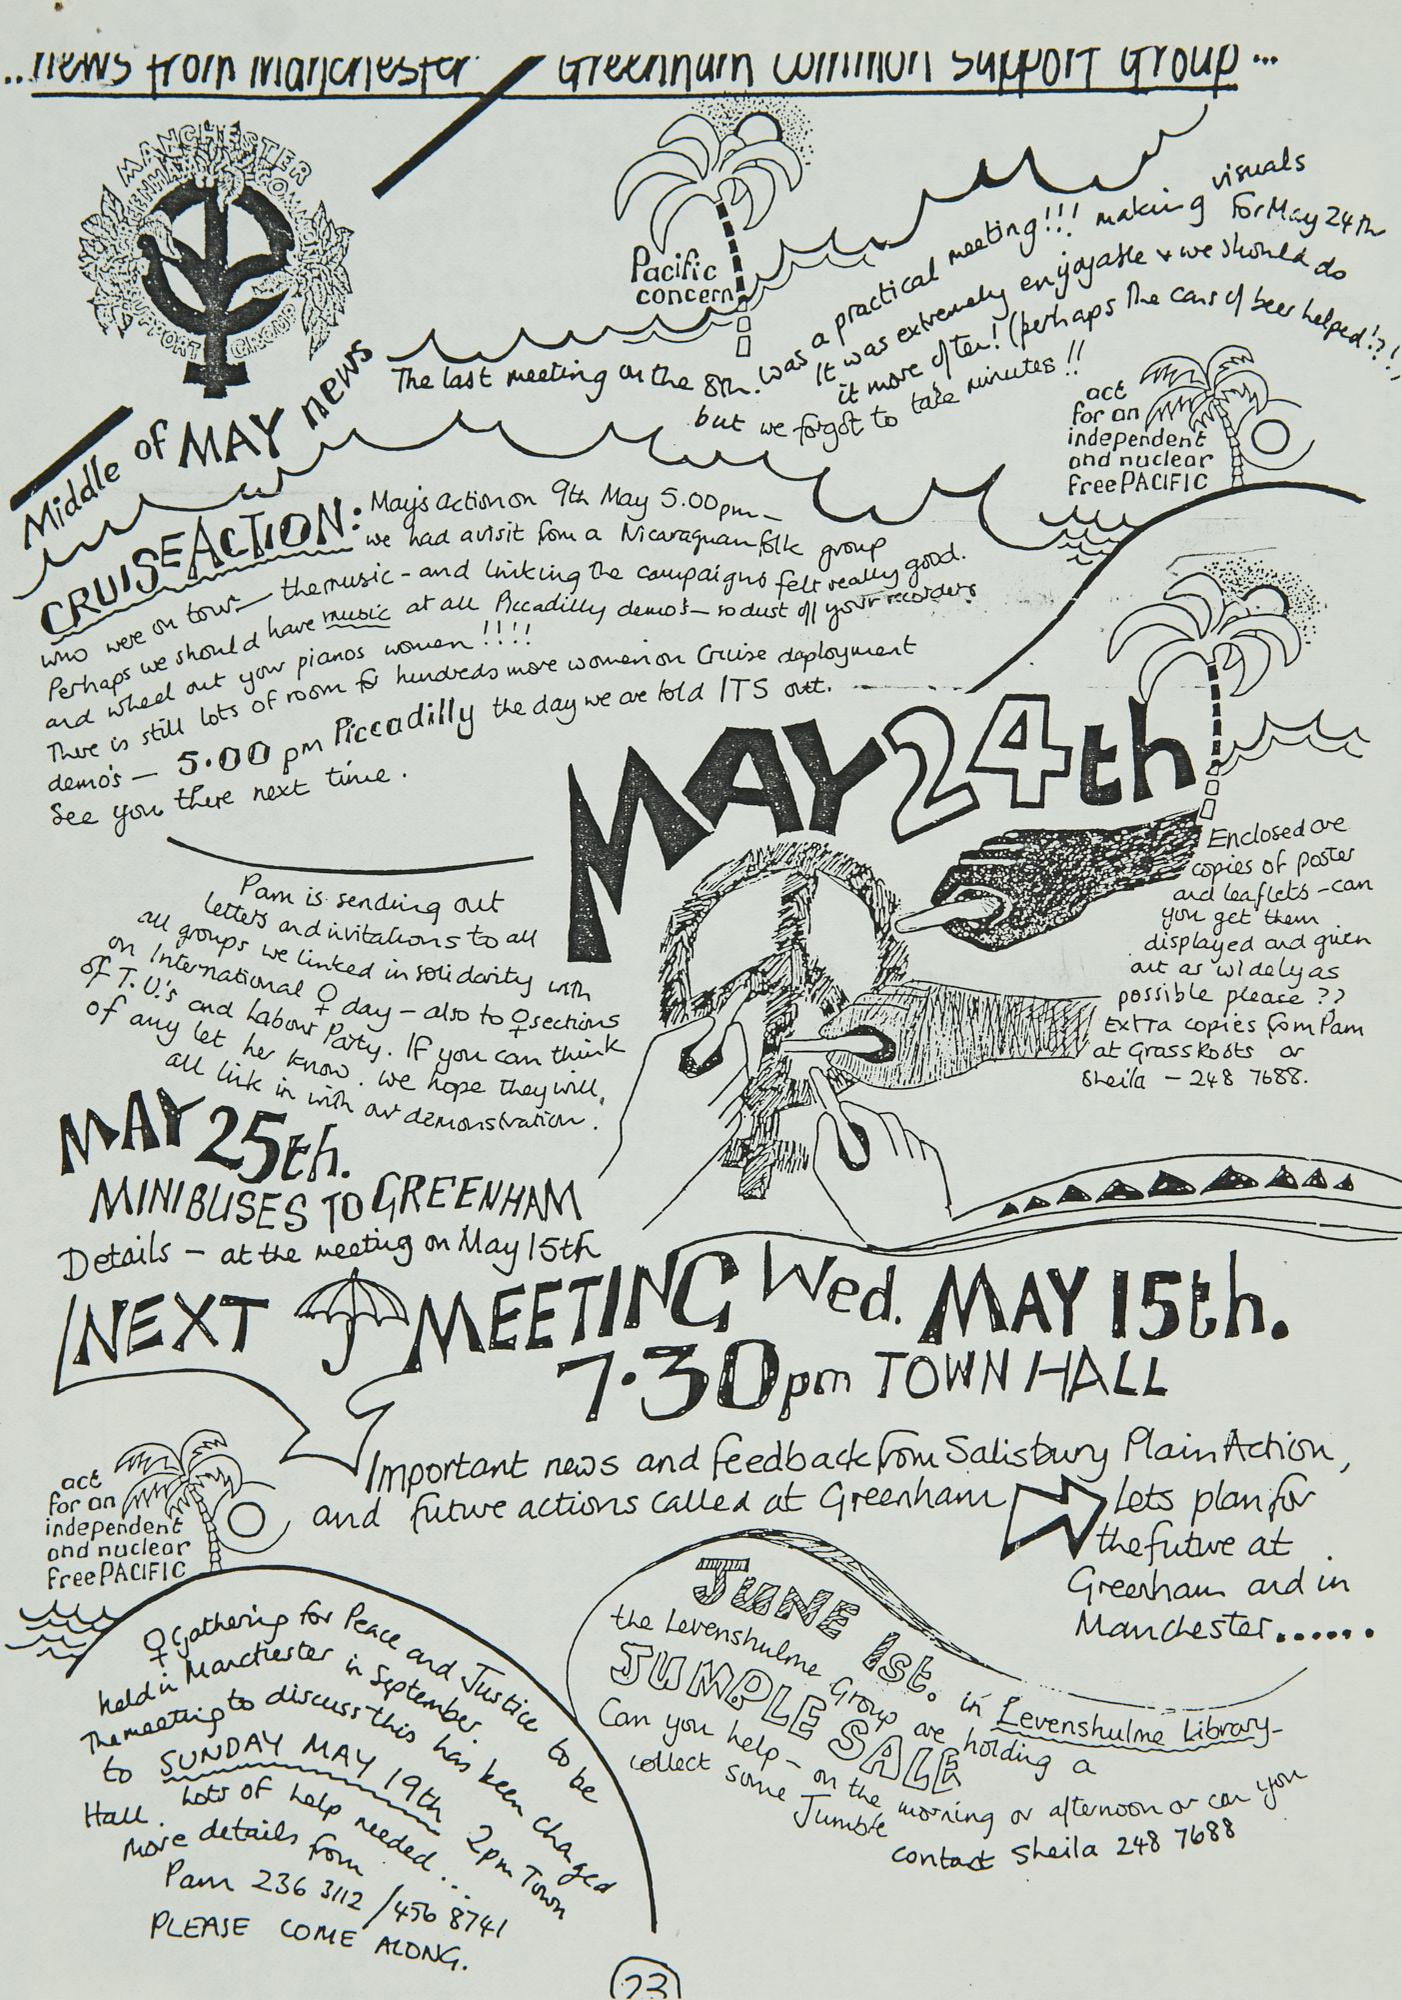 ...news from Manchester / Greenham Common Support Group...
MANCHESTER
GREENHAM COMMON
SUPPORT GROUP
Pacific
concern
Middle of MAY news
The last meeting on the 8th. was a practical meeting!!! making visuals for May 24th
It was extremely enjoyable & we should do
it more often! (perhaps the cans of beer helped!?!)
but we forgot to take minutes!!
act
for an
independent
and nuclear
free PACIFIC
CRUISE ACTION: May's action on 9th May 5.00pm —
we had a visit from a Nicaraguan folk group
who were on tour — the music - and linking the campaigns felt really good.
Perhaps we should have music at all Piccadilly demo's — so dust off your recorders
and wheel out your pianos women!!!!
There is still lots of room for hundreds more women on Cruise deployment
demo's — 5.00 pm Piccadilly the day we are told ITS out.
See you there next time.
MAY 24th
Enclosed are
copies of poster
and leaflets - can
you get them
displayed and given
out as widely as
possible please ??
Extra copies from Pam
at Grass Roots or
Sheila - 248 7688.
Pam is sending out
letters and invitations to all
all groups we linked in solidarity with
on International ♀ day - also to ♀ sections
of T.U.'s and Labour Party. If you can think
of any let her know. We hope they will
all link in with our demonstration.
MAY 25th.
MINIBUSES TO GREENHAM
Details - at the meeting on May 15th
NEXT MEETING Wed. MAY 15th.
7.30pm TOWN HALL
Important news and feedback from Salisbury Plain Action,
and future actions called at Greenham
Lets plan for
the future at
Greenham and in
Manchester......
act
for an
independent
and nuclear
free PACIFIC
♀ Gathering for Peace and Justice to be
held in Manchester in September
The meeting to discuss this has been changed
to SUNDAY MAY 19th 2pm Town
Hall. Lots of help needed...
More details from
Pam 236 3112 / 456 8741
PLEASE COME ALONG.
JUNE 1st. in Levenshulme Library -
the Levenshulme Group are holding a
JUMPLE SALE
Can you help - on the morning or afternoon or can you
collect some Jumble
contact Sheila 248 7688
23